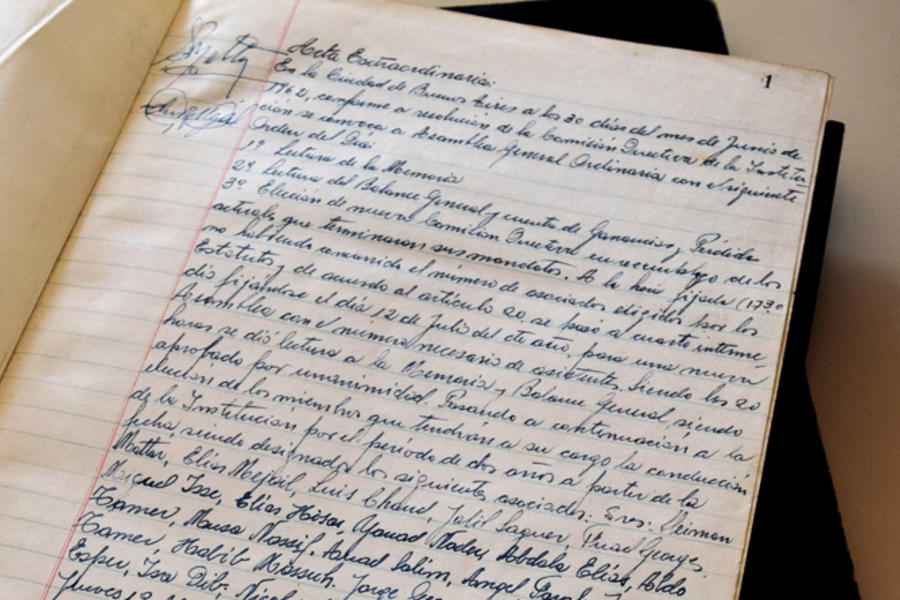 1
Acta Extraordinaria:
En la Ciudad de Buenos Aires a los 30 días del mes de Junio de
1962, conforme a resolución de la Comisión Directiva de la Institu-
ción se convoca a Asamblea General Ordinaria con el siguiente
Orden del Día:
1º Lectura de la Memoria
2º Lectura del Balance General y cuenta de Ganancias y Pérdidas
3º Elección de nueva Comisión Directiva en reemplazo de los
actuales que terminaron sus mandatos. A la hora fijada (17,30
no habiendo concurrido el número de asociados exigidos por los
Estatutos y de acuerdo al artículo 20, se pasó a cuarto interme-
dio fijándose el día 12 de Julio del cte año, para una nueva
Asamblea con el número necesario de asistentes. Siendo las 20
horas se dió lectura a la Memoria y Balance General, siendo
aprobado por unanimidad. Pasando a continuación a la
elección de los miembros que tendrán a su cargo la conducción
de la Institución por el período de dos años a partir de la
fecha, siendo designados los siguientes asociados: Sres:
Mattar, Elías Luis Jalil George,
Miguel Isse, Elías Nader, Abdala Elías, Aldo
Tamer, Musa Nassif, Salim, Angel
Tamer, Habib Jorge
Esper, Isa Dib,
Jueves